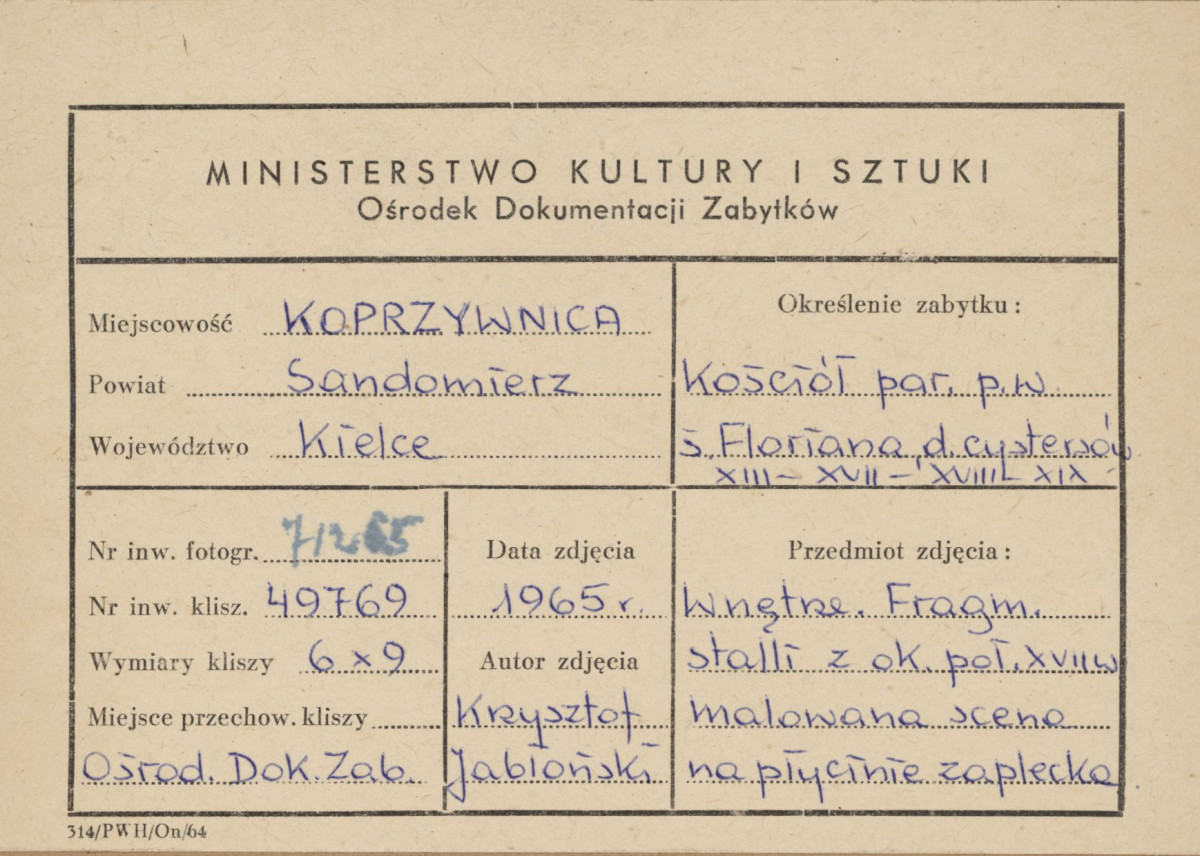 MINISTERSTWO KULTURY I SZTUKI
Ośrodek Dokumentacji Zabytków
Miejscowość KOPRZYWNICA
Powiat Sandomierz
Województwo Kielce
Określenie zabytku:
Kościół par. p.w.
ś. Floriana, d. cystersów
XIII – XVII – XVIII – XIX
Nr inw. fotogr.
Nr inw. klisz. 49769
Wymiary kliszy 6 x 9
Miejsce przechow. kliszy
Ośrod. Dok. Zab.
Data zdjęcia
1965 r.
Autor zdjęcia
Krzysztof
Jabłoński
Przedmiot zdjęcia:
Wnętrze. Fragm.
stalli z ok. poł. XVII w
malowana scena
na płycinie zaplecka
314/PWH/On/64